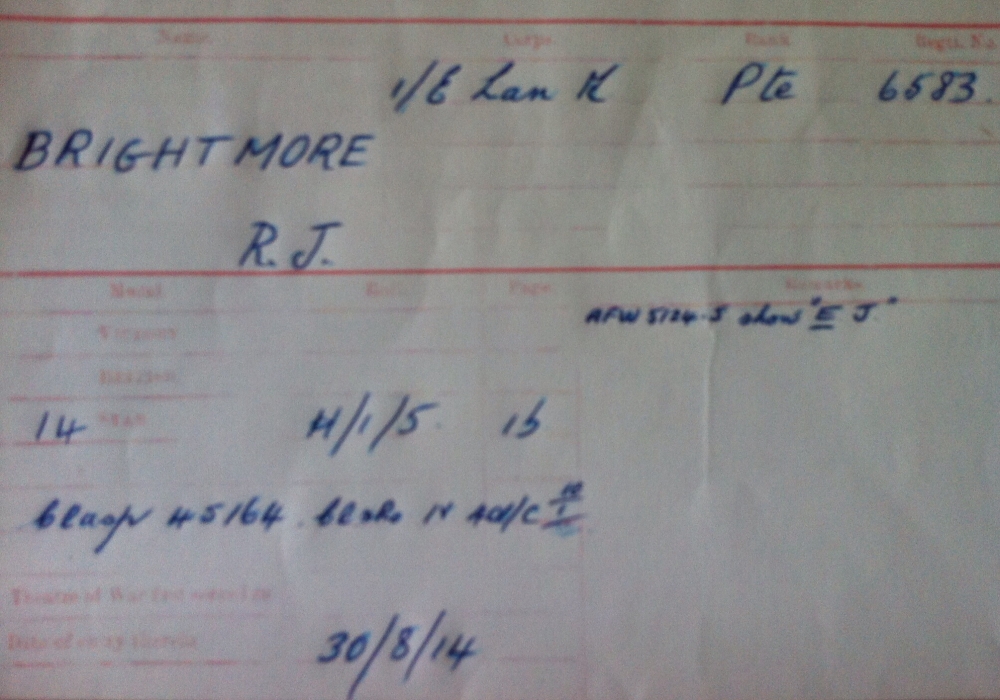 Name. Corps. Rank Regtl. No.
1/E Lan R Pte 6583.
BRIGHTMORE
R. J.
Medal. Roll. Page. Remarks.
Victory AFW 5124-J show "E J."
British
14 Star H/1/5. 15
Clasp 45164
Theatre of War first served in
Date of entry therein 30/8/14